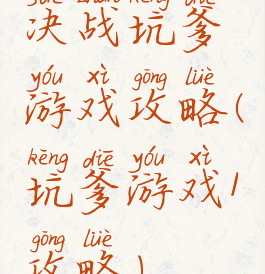 jué zhàn kēng diē
决战坑爹
yóu xì gōng lüè
游戏攻略(
kēng diē yóu xì
坑爹游戏/
gōng lüè
攻略)